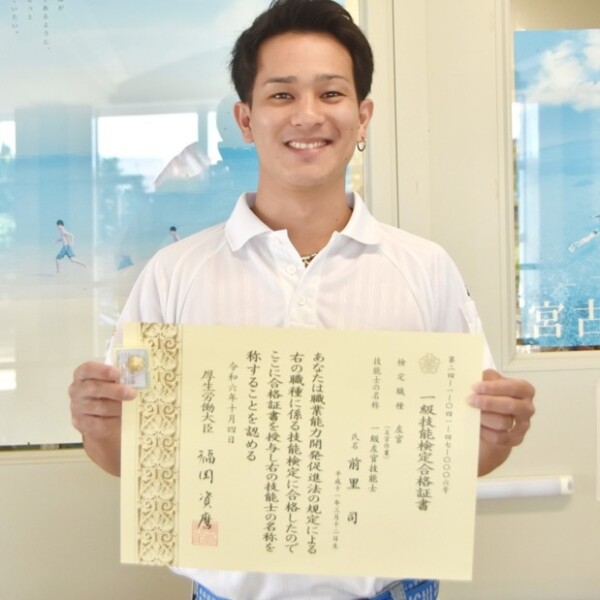 第二四-一-一〇四-一-四七-〇〇〇六号
一級技能検定合格証書
検定職種　左官
(左官作業)
技能士の名称　一級左官技能士
氏名　前里　司
平成十一年三月十二日生
あなたは職業能力開発促進法の規定による
右の職種に係る技能検定に合格したので
ここに合格証書を授与し右の技能士の名称を
称することを認める
令和六年十月四日
厚生労働大臣　福岡資麿
宮古